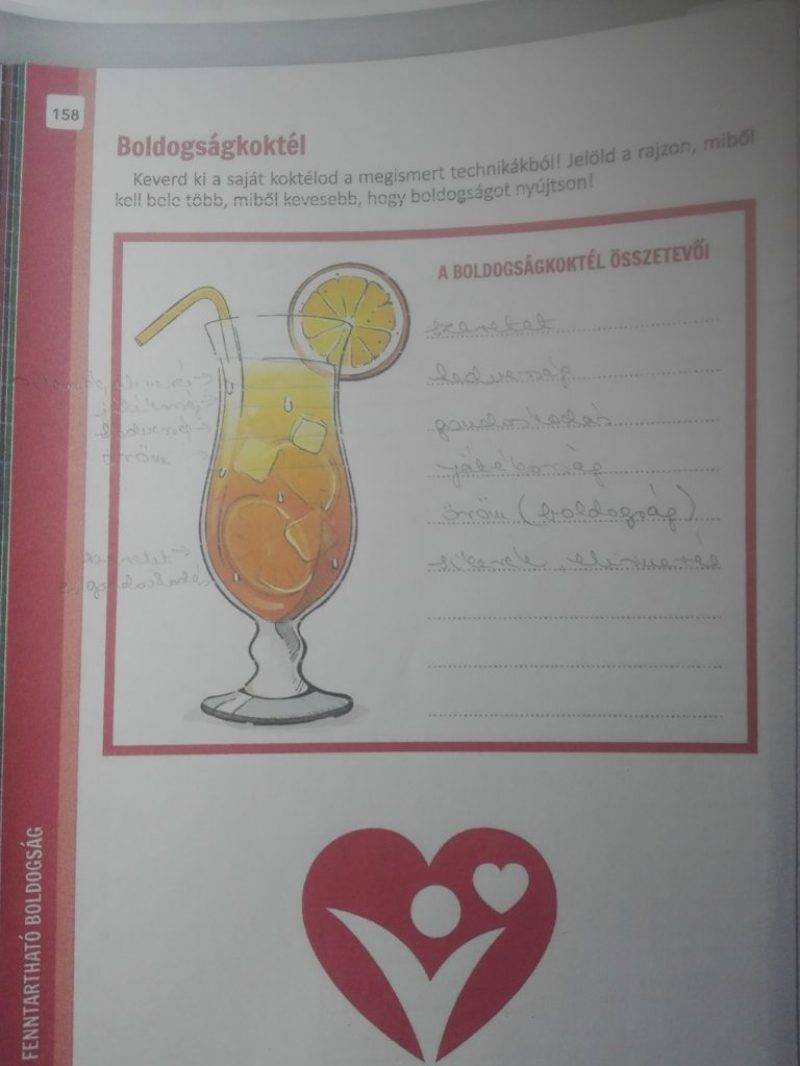 158
Boldogságkoktél
Keverd ki a saját koktélod a megismert technikákból! Jelöld a rajzon, miből
kell bele több, miből kevesebb, hogy boldogságot nyújtson!
A BOLDOGSÁGKOKTÉL ÖSSZETEVŐI
szeretet
kedvesség
gondoskodás
játékosság
öröm (boldogság)
sikerek, elismerés
FENNTARTHATÓ BOLDOGSÁG